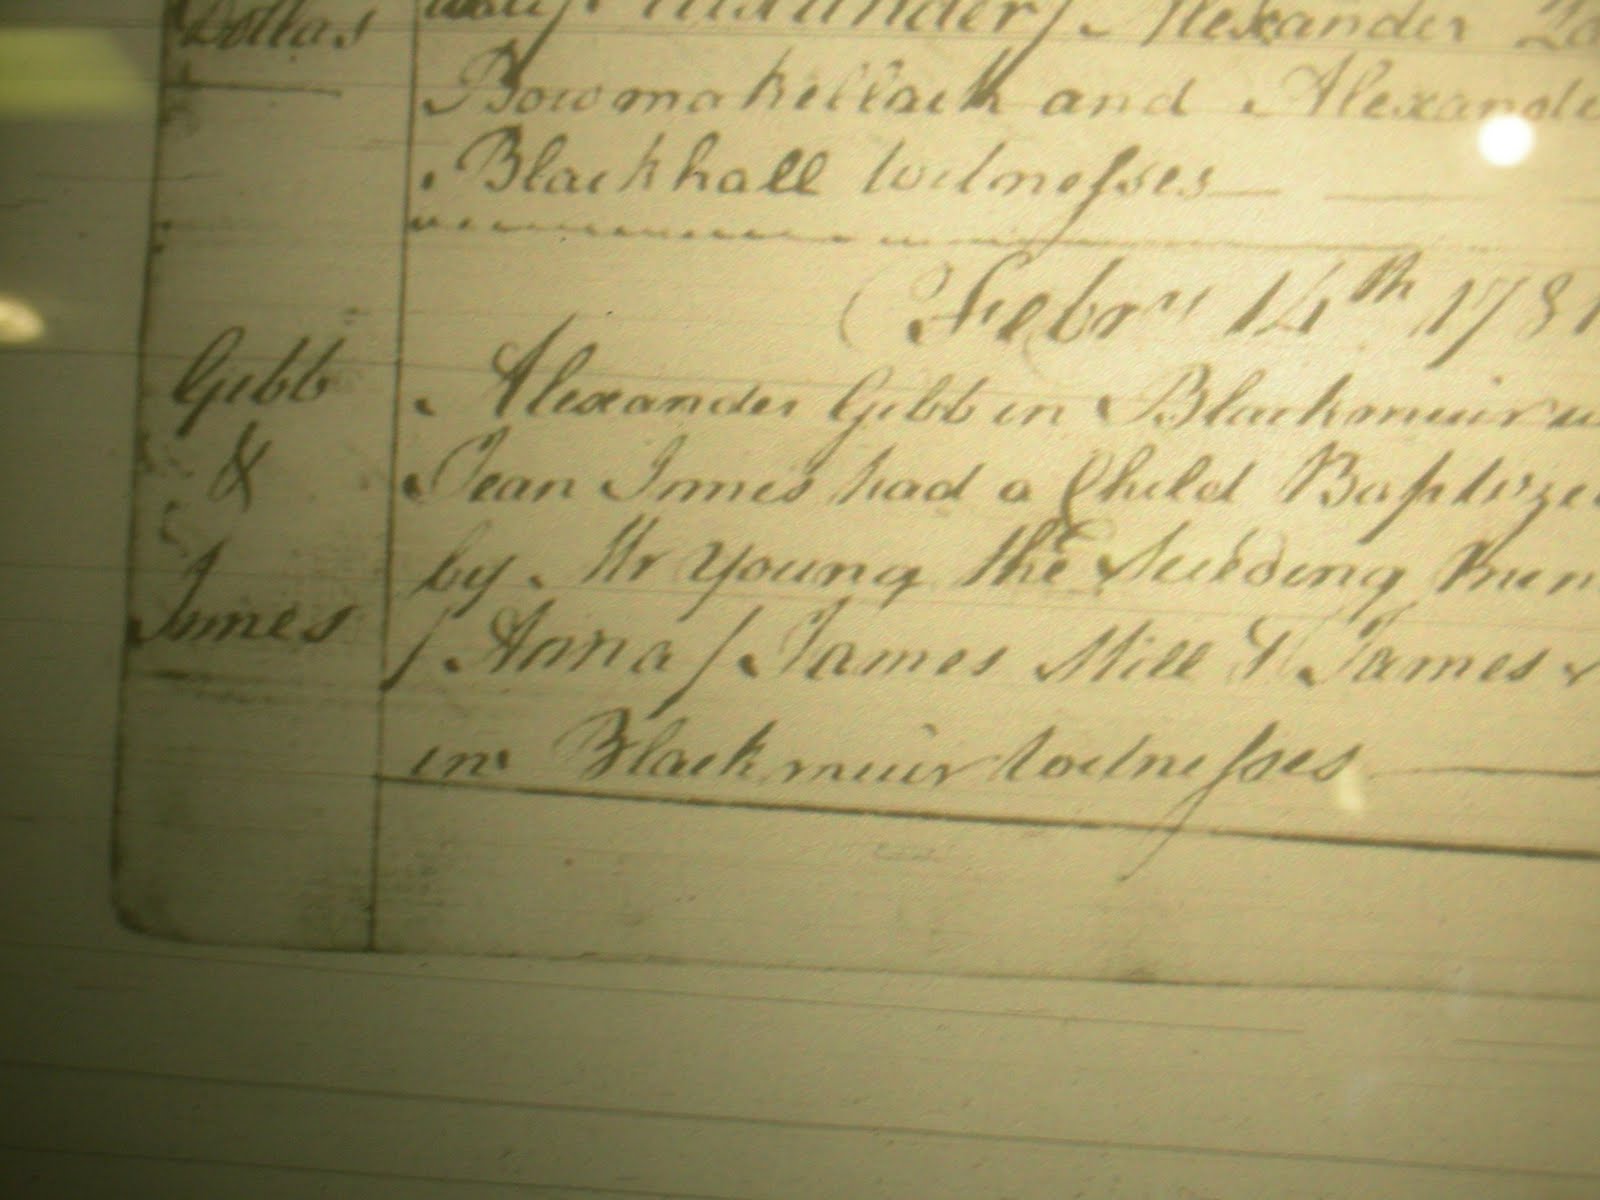 Dollas
Alexander / Alexander
Bowmakellach and Alexande
Blackhall witnesses
Febry 14th 1781
Gibb & Innes
Alexander Gibb in Blackmuir
Jean Innes had a Child Baptize
by Mr Young the Seceding
/ Anna / James Mill & James
in Blackmuir witnesses